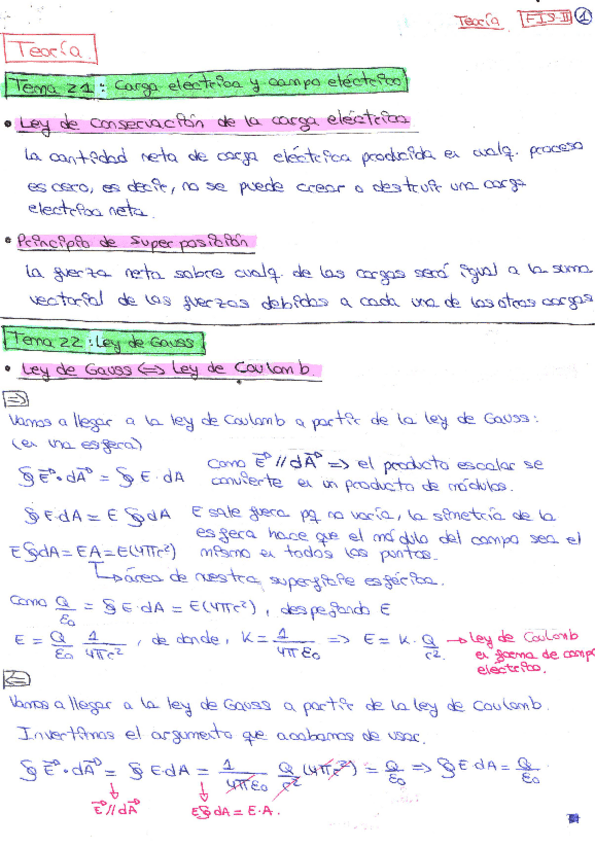 Teoría FIS-II 1
Teoría
Tema 21: Carga eléctrica y campo eléctrico
• Ley de conservación de la carga eléctrica
la cantidad neta de carga eléctrica producida en cualq. proceso
es cero, es decir, no se puede crear o destruir una carga
electrica neta.
• Principio de superposición
la fuerza neta sobre cualq. de las cargas será igual a la suma
vectorial de las fuerzas debidas a cada una de las otras cargas
Tema 22: Ley de Gauss
• Ley de Gauss <=> Ley de Coulomb.
=>
Vamos a llegar a la ley de Coulomb a partir de la ley de Gauss:
(en una esfera)
∯ E⃗ · dA⃗ = ∯ E · dA Como E⃗ // dA⃗ => el producto escalar se
convierte en un producto de módulos.
∯ E·dA = E ∯ dA E sale fuera pq no varía, la simetría de la
esfera hace que el módulo del campo sea el
E∯dA = EA = E(4πr²) mismo en todos los puntos.
↳ área de nuestra superficie esférica.
Como Q/ε₀ = ∯ E·dA = E(4πr²), despejando E
E = Q/ε₀ 1/4πr², de donde, K = 1/4πε₀ => E = K · Q/r² → Ley de Coulomb
en forma de campo
eléctrico.
<=
Vamos a llegar a la ley de Gauss a partir de la ley de Coulomb.
Invertimos el argumento que acabamos de usar.
∯ E⃗ · dA⃗ = ∯ E·dA = 1/4πε₀ Q/r² (4πr²) = Q/ε₀ => ∯ E·dA = Q/ε₀
E⃗ // dA⃗ E∯dA = E·A.